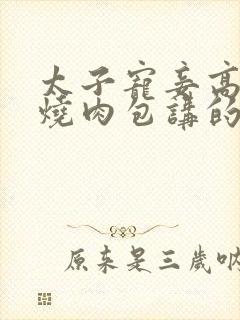 太子寵妾高
燒肉包講的
原来是三歲吶